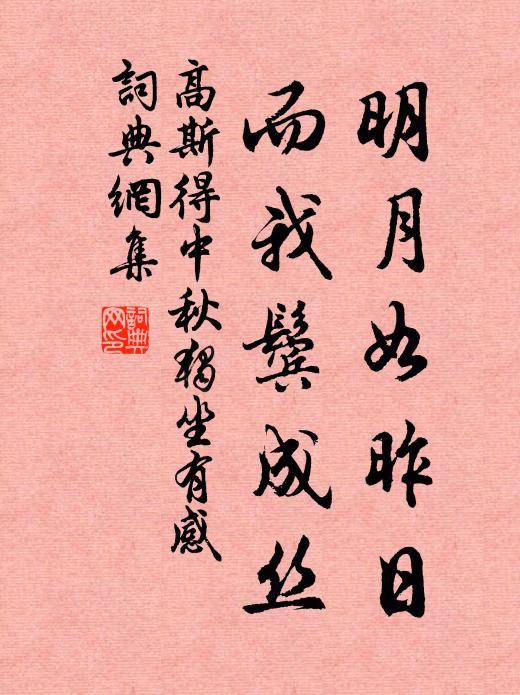 明月如昨日
而我鬓成丝
高斯得中秋独坐有感
詞典網集
詞典
网印